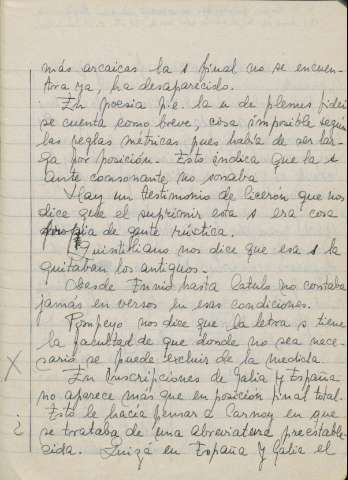 más arcaicas la s final no se encuen-
tra ya, ha desaparecido.
En poesia p.e. la u de plenus fidei
se cuenta como breve, cosa imposible según
las reglas métricas pues había de ser lar-
ga por posición. Esto indica que la s
ante consonante, no sonaba
Hay un testimonio de Cicerón que nos
dice que el suprimir esta s era cosa
propia de gente rústica.
Quintiliano nos dice que esa s la
quitaban los antiguos.
Desde Ennio hasta Catulo no contaba
jamás en versos en esas condiciones.
Pompeyo nos dice que la letra s tiene
la facultad de que donde no sea nece-
saria se puede excluir de la medida
X En Inscripciones de Galia y España
no aparece más que en posición final total.
Esto le hacía pensar a Carnoy en que
¿ se trataba de una abreviatura preestable-
cida. Quizá en España y Galia el